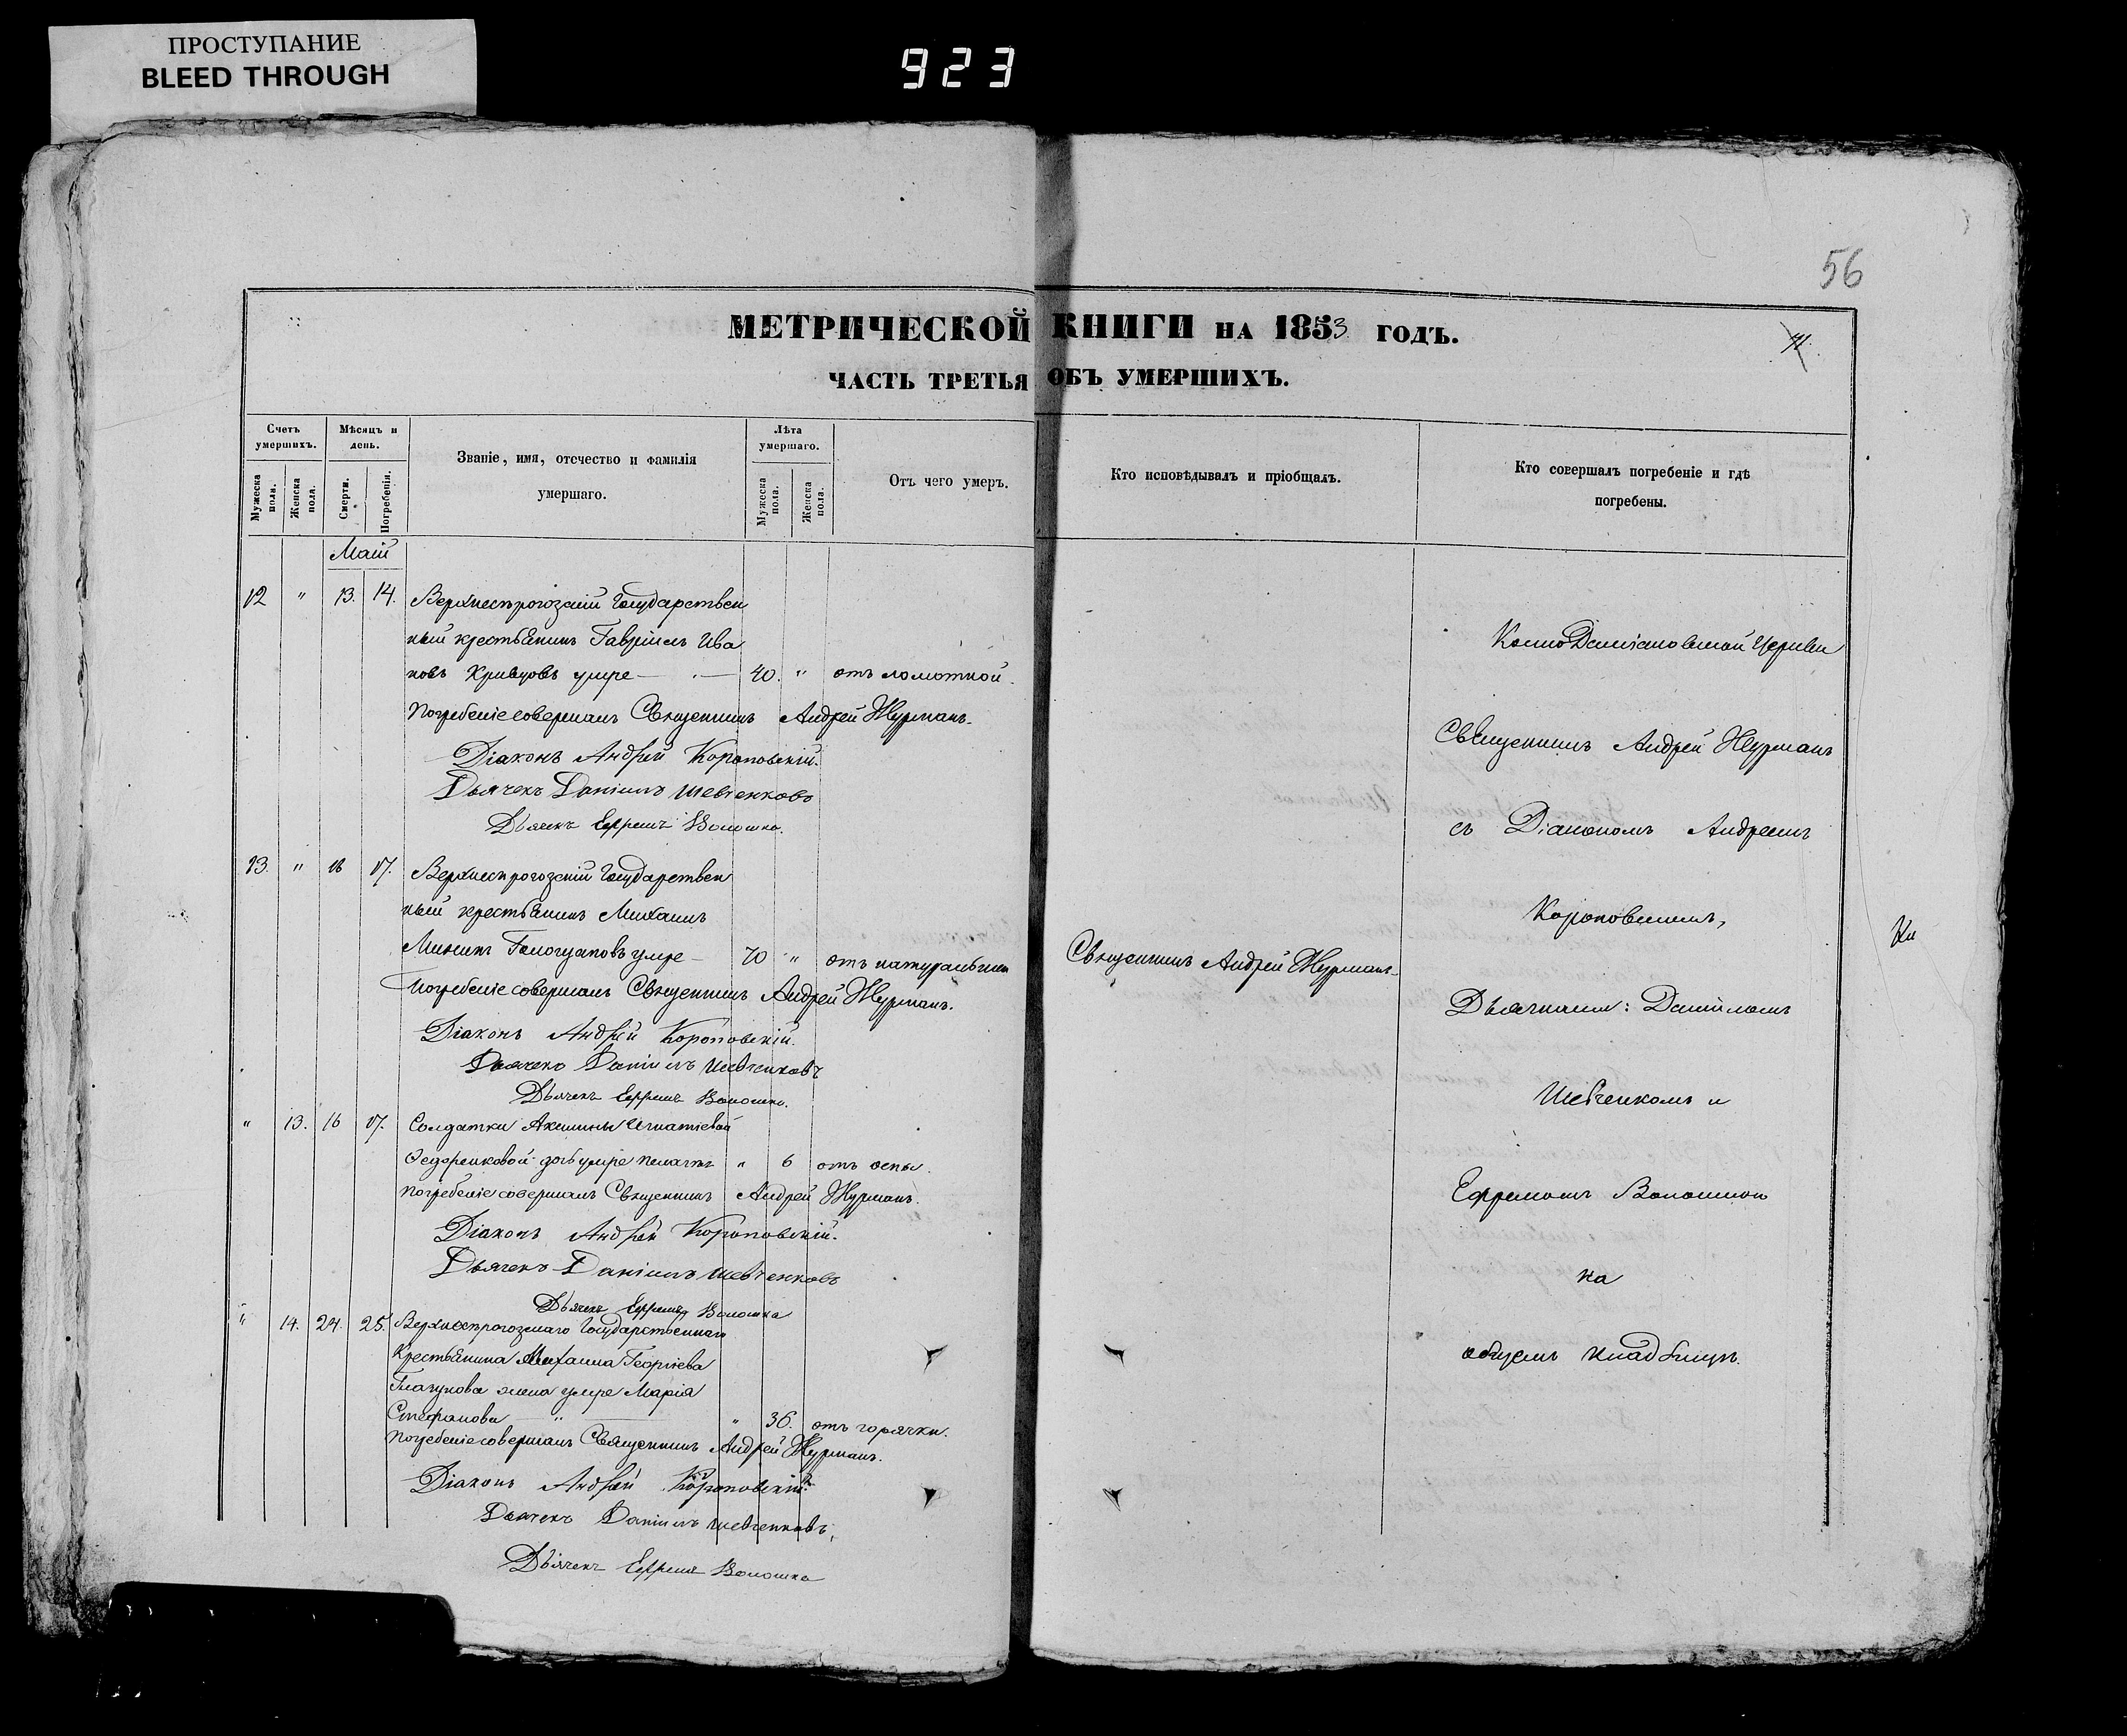 ПРОСТУПАНИЕ
BLEED THROUGH
923
56
МЕТРИЧЕСКОЙ КНИГИ НА 1853 ГОДЪ.
ЧАСТЬ ТРЕТЬЯ ОБЪ УМЕРШИХЪ.
Счетъ умершихъ.
Мужеска пола.
Женска пола.
Мѣсяцъ и день.
Смерти.
Погребенія.
Званіе, имя, отечество и фамилія
умершаго.
Лѣта умершаго.
Мужеска пола.
Женска пола.
Отъ чего умеръ.
Кто исповѣдывалъ и пріобщалъ.
Кто совершалъ погребеніе и гдѣ
погребены.
Маій
12 " 13. 14. Верхнерогозскій Государствен
ный крестьянинъ Гавріилъ Ива
новъ Кривцовъ умре — 40. " отъ ломотной.
Погребеніе совершалъ Священникъ Андрей Журманъ.
Діаконъ Андрей Короповскій.
Дьячекъ Даніилъ Шевченковъ
Дьячекъ Ефремъ Волошка.
13. " 16 17. Верхнерогозскій Государствен
ный крестьянинъ Михаилъ
Мининъ умре — 70 " отъ натуральной
Погребеніе совершалъ Священникъ Андрей Журманъ.
Діаконъ Андрей Короповскій.
Дьячекъ Даніилъ Шевченковъ
Дьячекъ Ефремъ Волошка.
" 13. 16 17. Солдатки Акилины Игнатіевой
Ѳедоренковой дочь умре " 6 отъ оспы.
Погребеніе совершалъ Священникъ Андрей Журманъ.
Діаконъ Андрей Короповскій.
Дьячекъ Даніилъ Шевченковъ
Дьячекъ Ефремъ Волошка
" 14. 24. 25. Верхнерогозскаго Государственнаго
Крестьянина Михаила Георгіева
жена умре Марія
Стефанова " " 36. отъ горячки.
Погребеніе совершалъ Священникъ Андрей Журманъ.
Діаконъ Андрей Короповскій.
Дьячекъ Даніилъ Шевченковъ,
Дьячекъ Ефремъ Волошка
Священникъ Андрей Журманъ.
КосмоДаміановской Церкви
Священникъ Андрей Журманъ
съ Діакономъ Андреемъ
Короповскимъ,
Дьячками: Даніиломъ
Шевченкомъ и
Ефремомъ Волошкою
на
общемъ кладбищѣ.